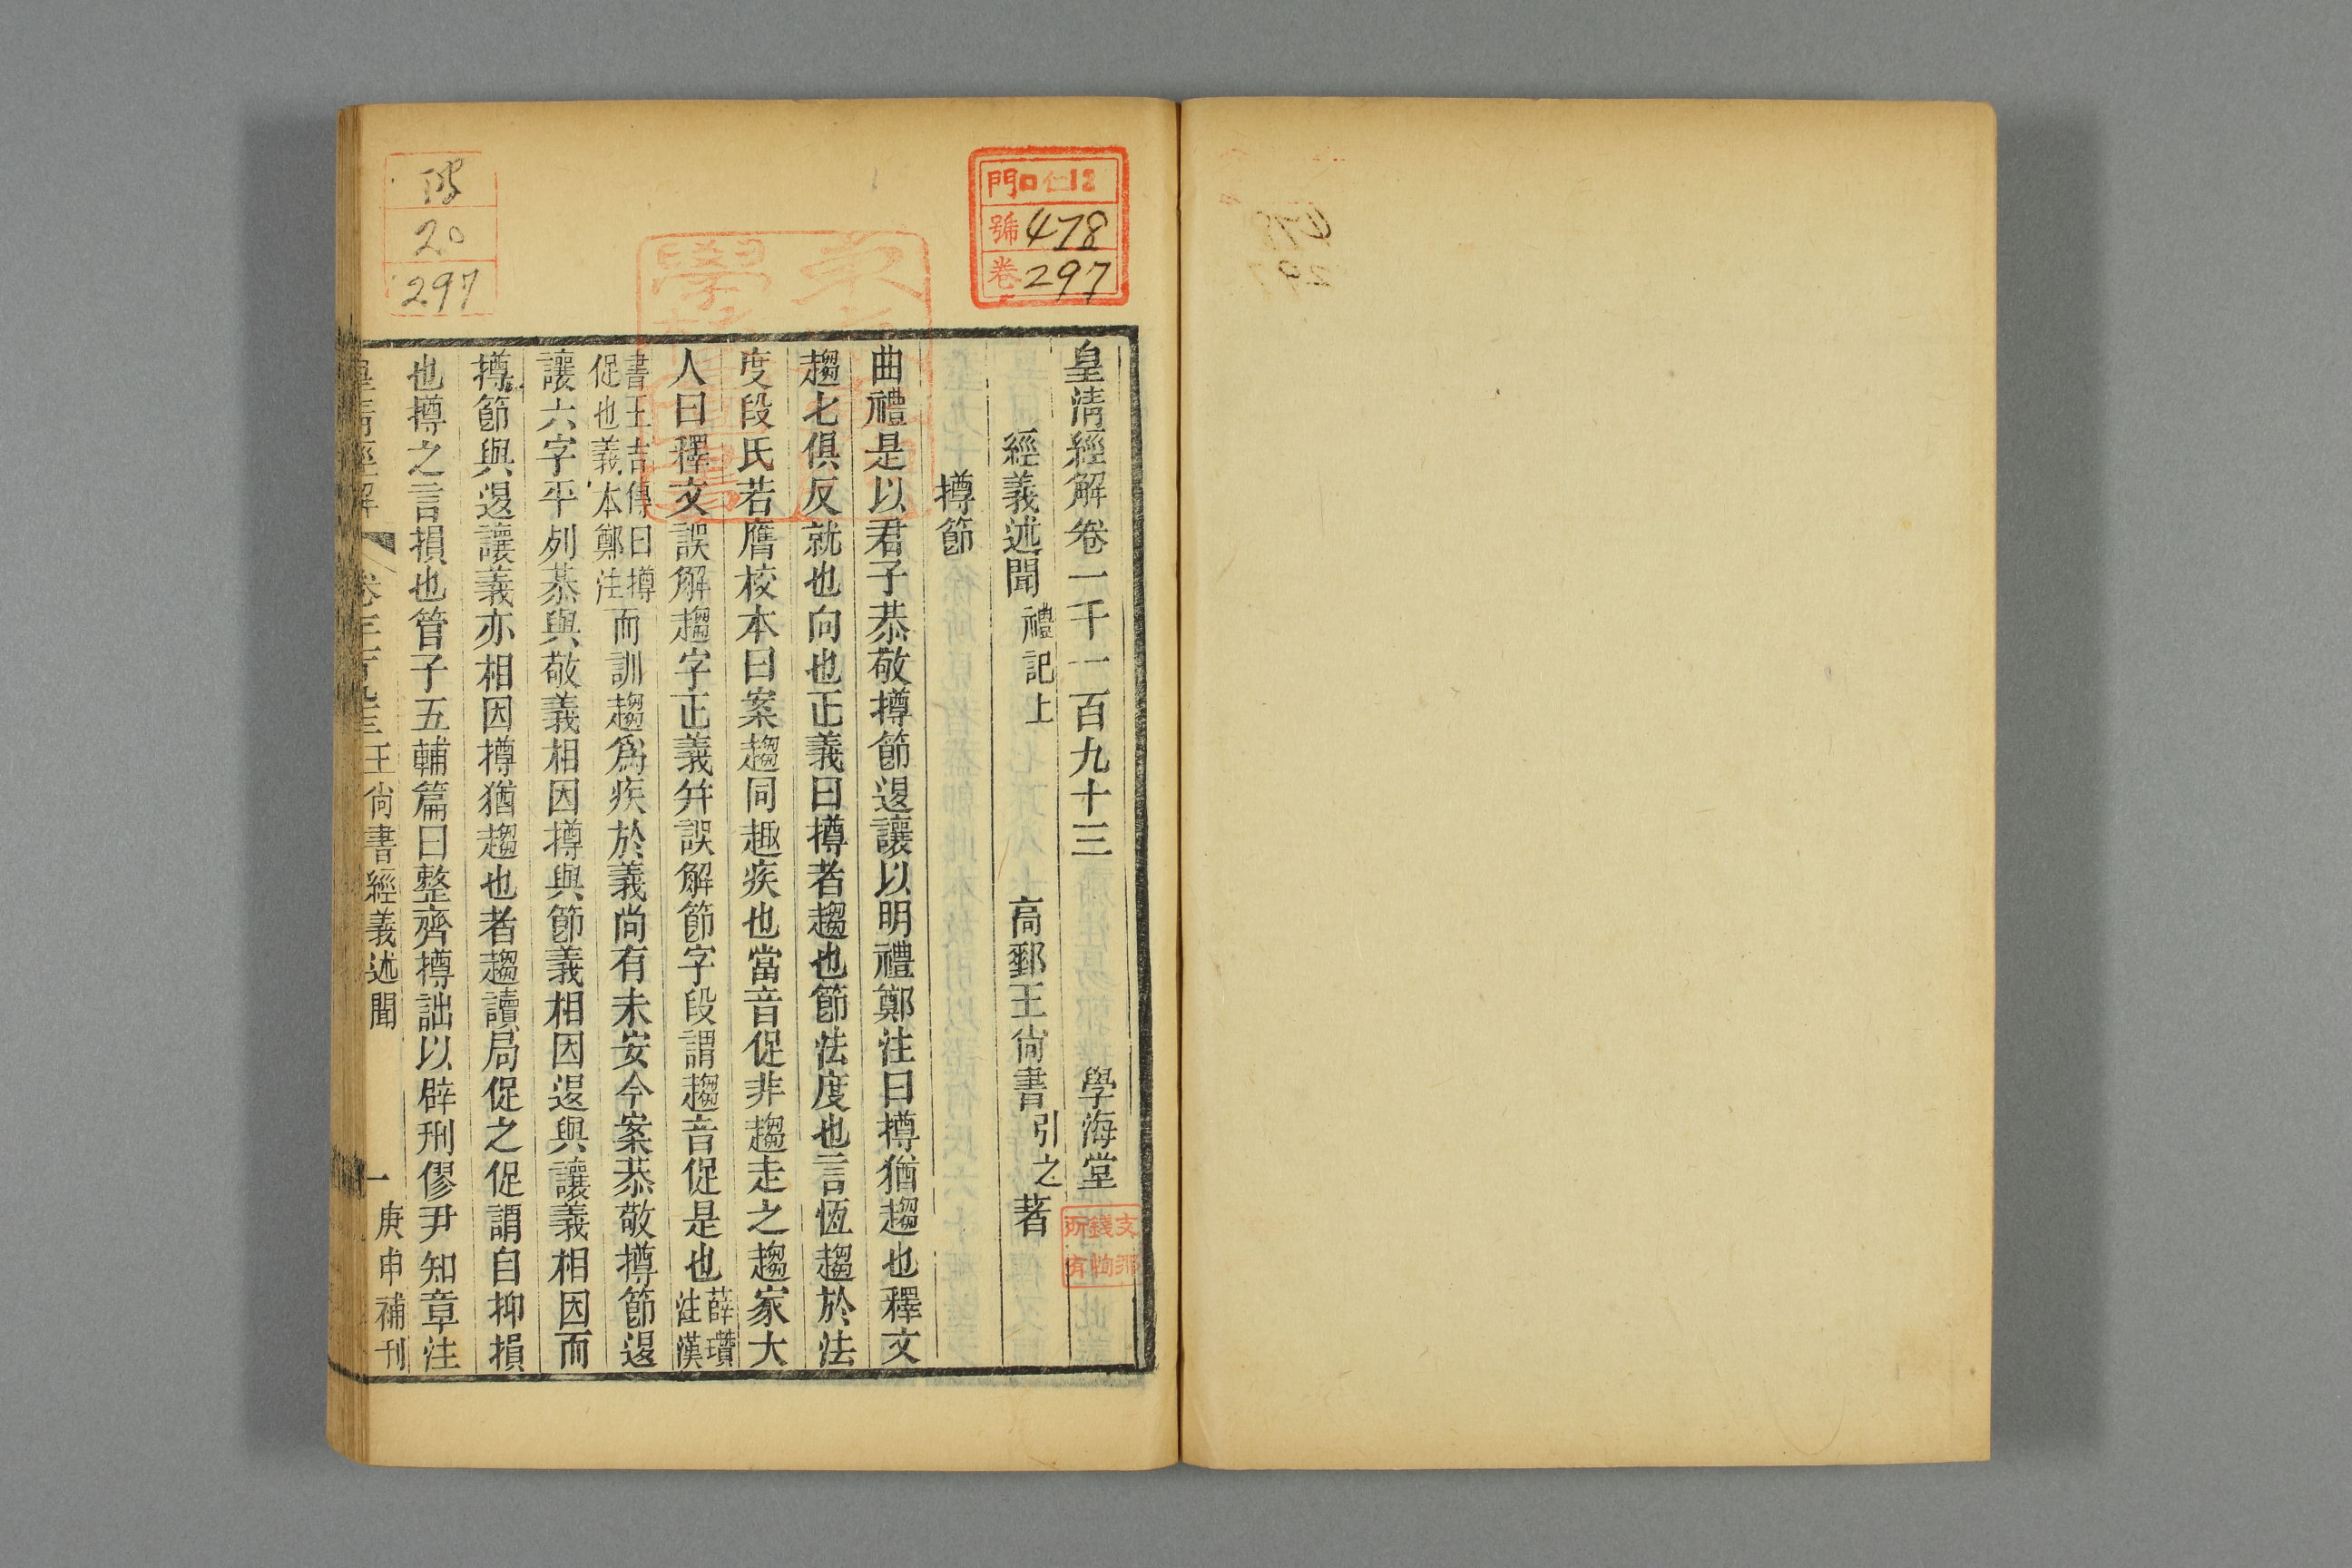 皇清經解卷一千一百九十三　學海堂
經義述聞 禮記上　高郵王尚書引之著
撙節
曲禮是以君子恭敬撙節退讓以明禮鄭注曰撙猶趨也釋文
趨七俱反就也向也正義曰撙者趨也節法度也言恆趨於法
度段氏若膺校本曰案趨同趣疾也當音促非趨走之趨家大
人曰釋文誤解趨字正義幷誤解節字段謂趨音促是也薛瓚注漢
書王吉傳曰撙促也義本鄭注而訓趨爲疾於義尚有未安今案恭敬撙節退
讓六字平列恭與敬義相因撙與節義相因退與讓義相因而
撙節與退讓義亦相因撙猶趨也者趨讀局促之促謂自抑損
也撙之言損也管子五輔篇曰整齊撙詘以辟刑僇尹知章注
皇清經解 王尚書經義述聞 一 庚申補刊
門 口仁12
號 478
卷 297
20
297